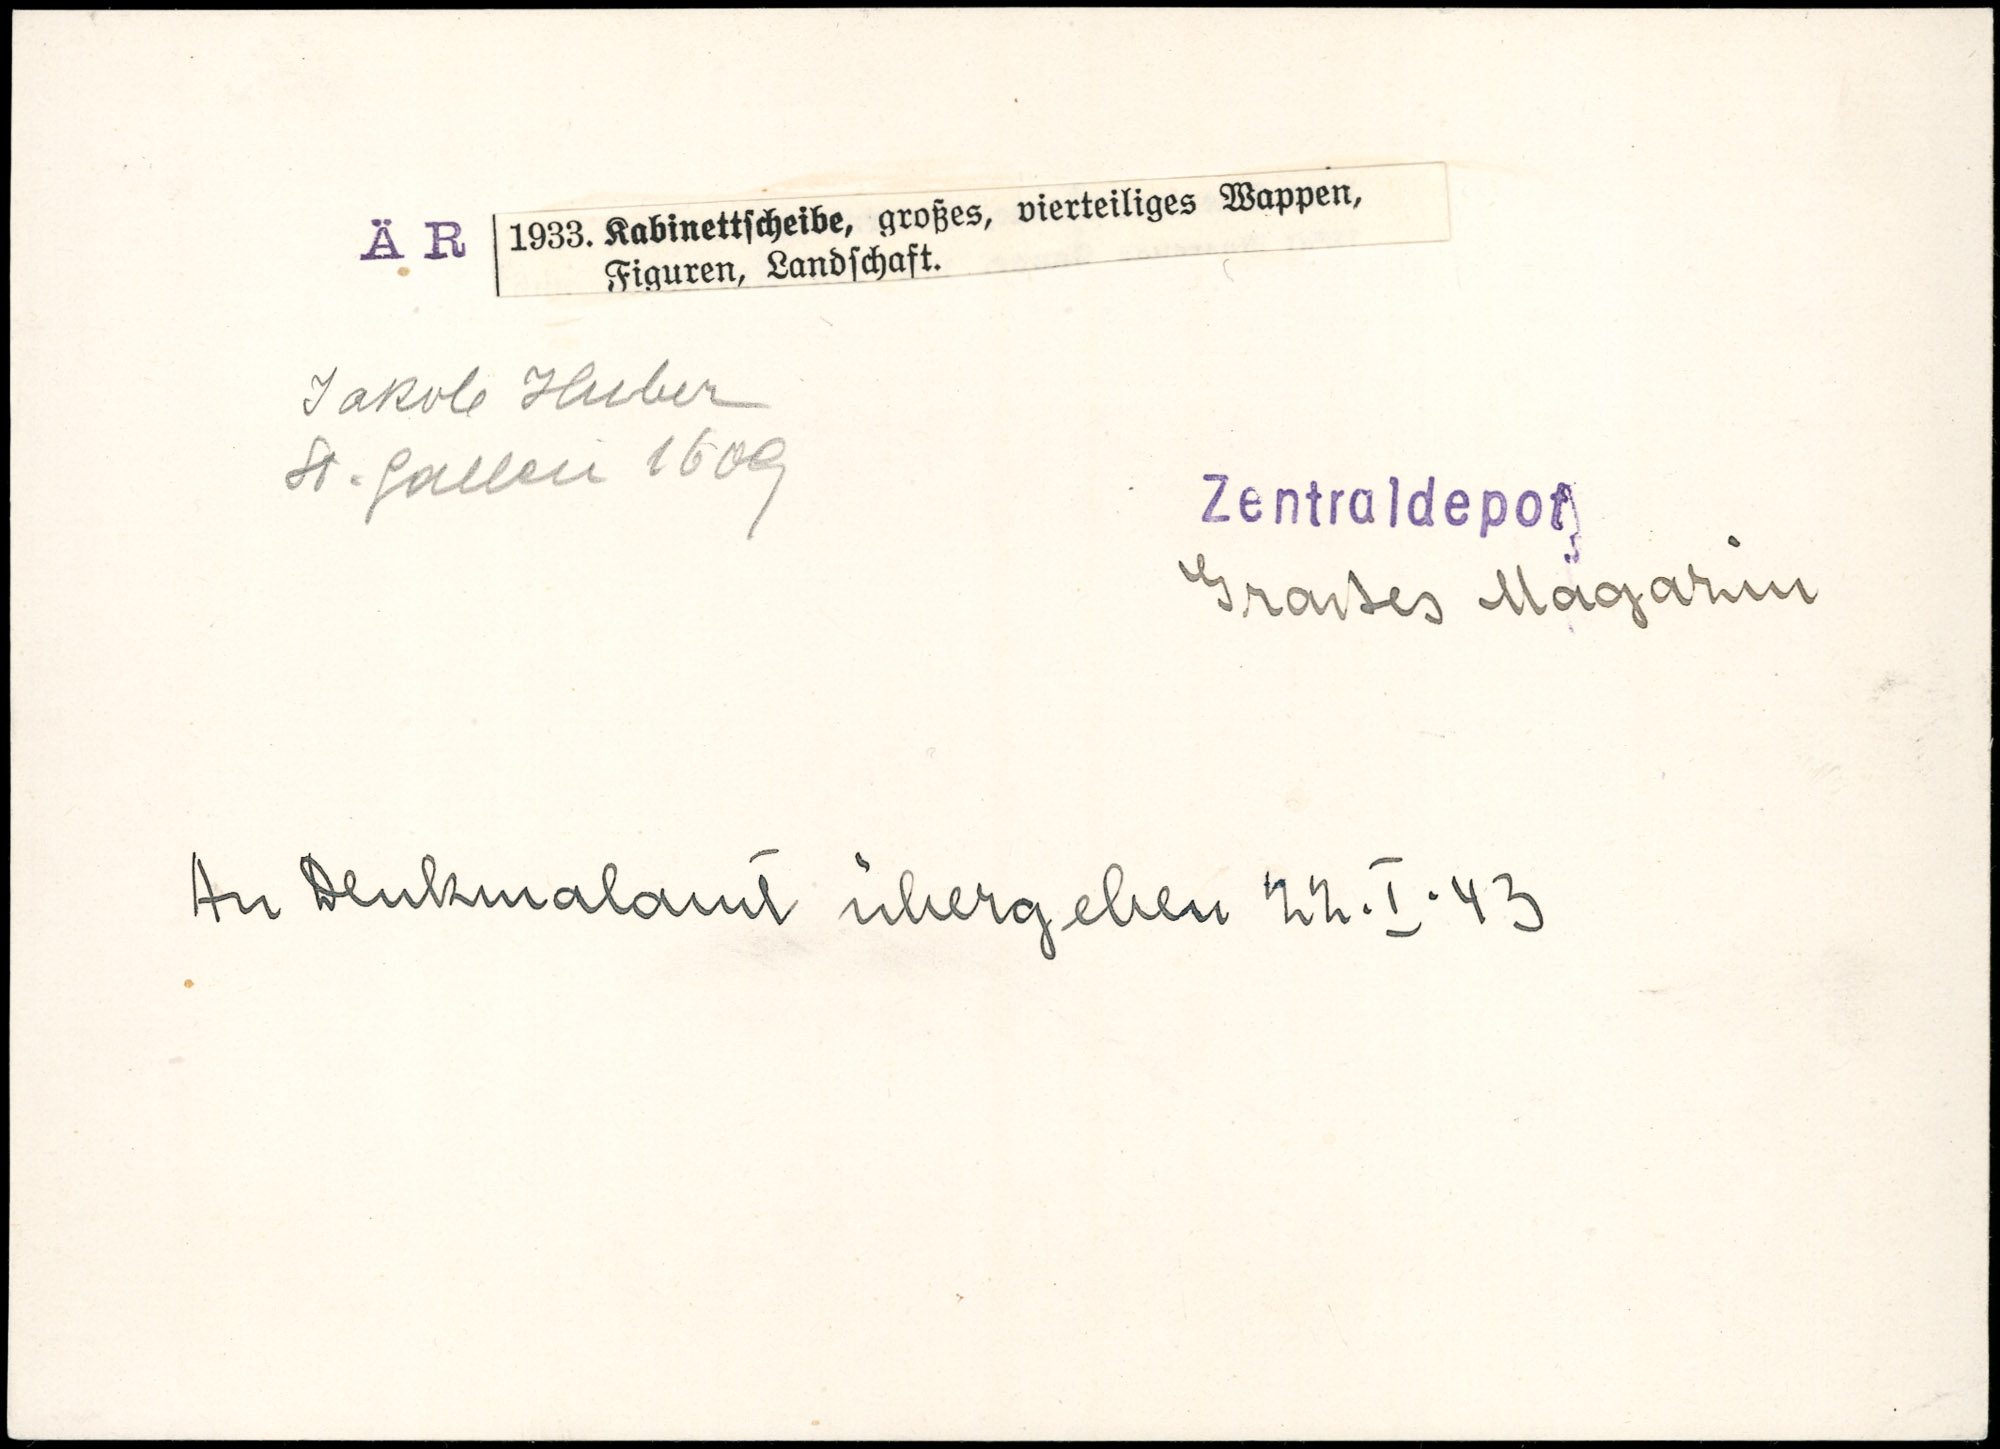 ÄR 1933. Kabinettscheibe, großes, vierteiliges Wappen,
Figuren, Landschaft.
Jakob Huber
St. Gallen 1609
Zentraldepot
Magazin
An Denkmalamt übergeben 22.I.43